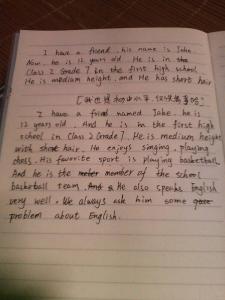 I have a friend. his name is Jake.
Now, he is 12 years old. He is in the
Class 2 Grade 7 in the first high school.
He is medium height. and He has short hair
I have a friend named Jake. he is
12 years old. And he is in the first high
school in Class 2 Grade 7. He is medium height
with short hair. He enjoys singing, playing
chess. His favorite sport is playing basketball.
And he is the member of the school
basketball team. He also speaks English
very well. We always ask him some
problem about English.